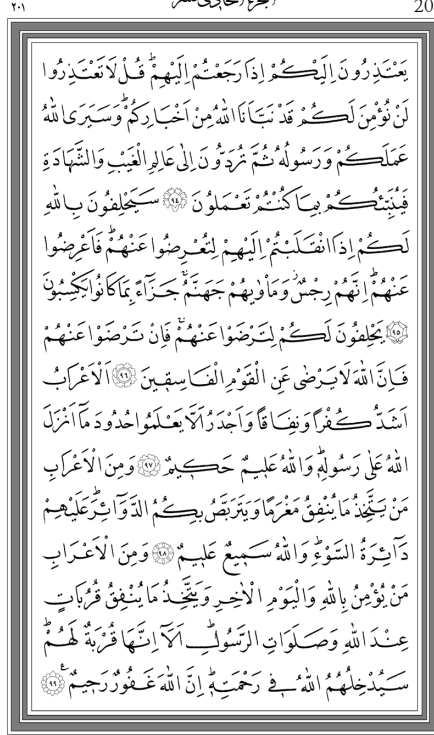 ٢٠١ 20
يَعْتَذِرُونَ اِلَيْكُمْ اِذَا رَجَعْتُمْ اِلَيْهِمْۜ قُلْ لَا تَعْتَذِرُوا
لَنْ نُؤْمِنَ لَكُمْ قَدْ نَبَّاَنَا اللّٰهُ مِنْ اَخْبَارِكُمْۜ وَسَيَرَى اللّٰهُ
عَمَلَكُمْ وَرَسُولُهُ ثُمَّ تُرَدُّونَ اِلٰى عَالِمِ الْغَيْبِ وَالشَّهَادَةِ
فَيُنَبِّئُكُمْ بِمَا كُنْتُمْ تَعْمَلُونَ ﴿٩٤﴾ سَيَحْلِفُونَ بِاللّٰهِ
لَكُمْ اِذَا انْقَلَبْتُمْ اِلَيْهِمْ لِتُعْرِضُوا عَنْهُمْۜ فَاَعْرِضُوا
عَنْهُمْۜ اِنَّهُمْ رِجْسٌۘ وَمَاْوٰيهُمْ جَهَنَّمُۚ جَزَٓاءً بِمَا كَانُوا يَكْسِبُونَ
﴿٩٥﴾ يَحْلِفُونَ لَكُمْ لِتَرْضَوْا عَنْهُمْۚ فَاِنْ تَرْضَوْا عَنْهُمْ
فَاِنَّ اللّٰهَ لَا يَرْضٰى عَنِ الْقَوْمِ الْفَاسِقِينَ ﴿٩٦﴾ اَلْاَعْرَابُ
اَشَدُّ كُفْرًا وَنِفَاقًا وَاَجْدَرُ اَلَّا يَعْلَمُوا حُدُودَ مَٓا اَنْزَلَ
اللّٰهُ عَلٰى رَسُولِهِۜ وَاللّٰهُ عَلِيمٌ حَكِيمٌ ﴿٩٧﴾ وَمِنَ الْاَعْرَابِ
مَنْ يَتَّخِذُ مَا يُنْفِقُ مَغْرَمًا وَيَتَرَبَّصُ بِكُمُ الدَّوَٓائِرَۜ عَلَيْهِمْ
دَٓائِرَةُ السَّوْءِۜ وَاللّٰهُ سَمِيعٌ عَلِيمٌ ﴿٩٨﴾ وَمِنَ الْاَعْرَابِ
مَنْ يُؤْمِنُ بِاللّٰهِ وَالْيَوْمِ الْاٰخِرِ وَيَتَّخِذُ مَا يُنْفِقُ قُرُبَاتٍ
عِنْدَ اللّٰهِ وَصَلَوَاتِ الرَّسُولِۜ اَلَٓا اِنَّهَا قُرْبَةٌ لَهُمْۜ
سَيُدْخِلُهُمُ اللّٰهُ فِي رَحْمَتِهِۜ اِنَّ اللّٰهَ غَفُورٌ رَحِيمٌ ﴿٩٩﴾